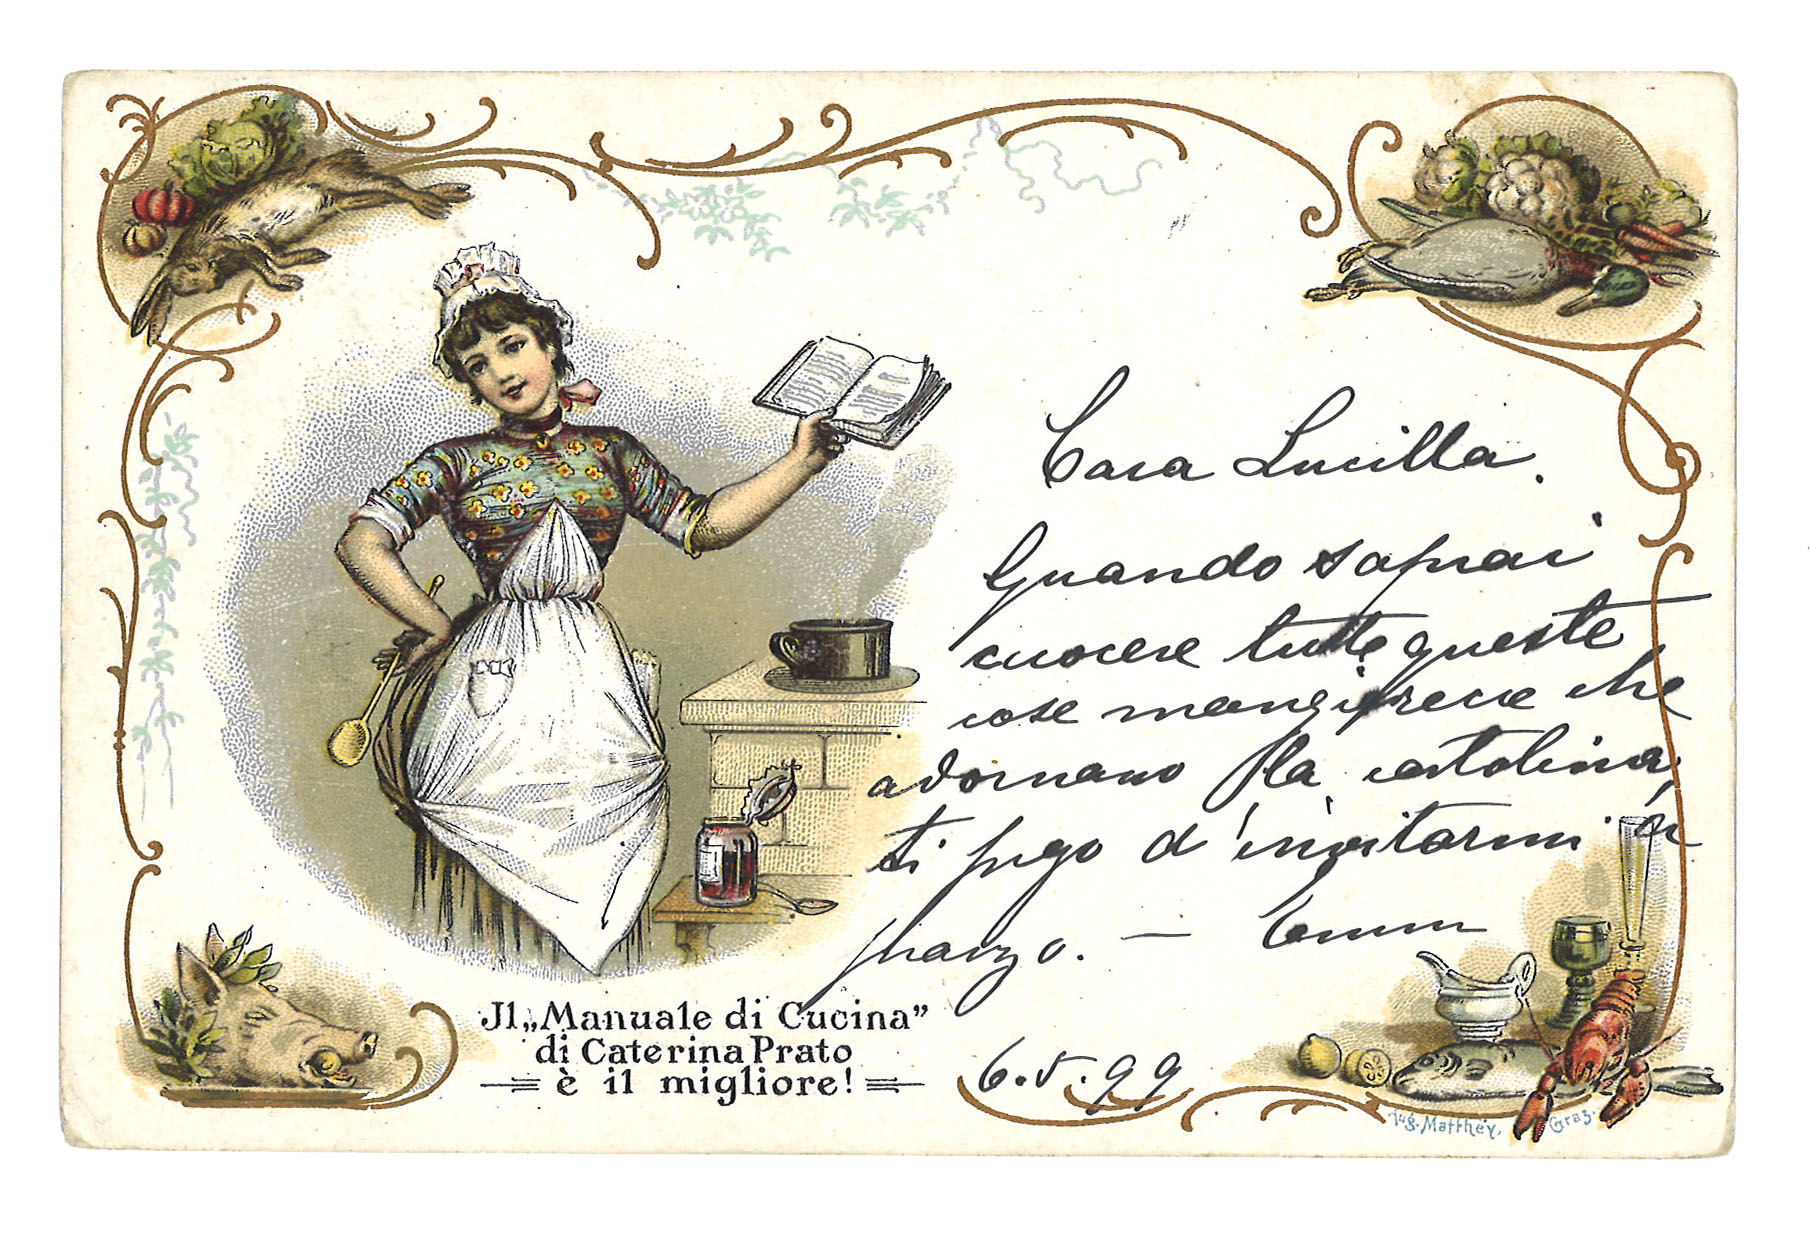 Cara Lucilla.
Quando saprai
cuocere tutte queste
cose mangierecce che
adornano la cartolina,
ti prego d'invitarmi a
pranzo. —
6.V.99
Jl „Manuale di Cucina”
di Caterina Prato
è il migliore!
Aug. Matthey, Graz.